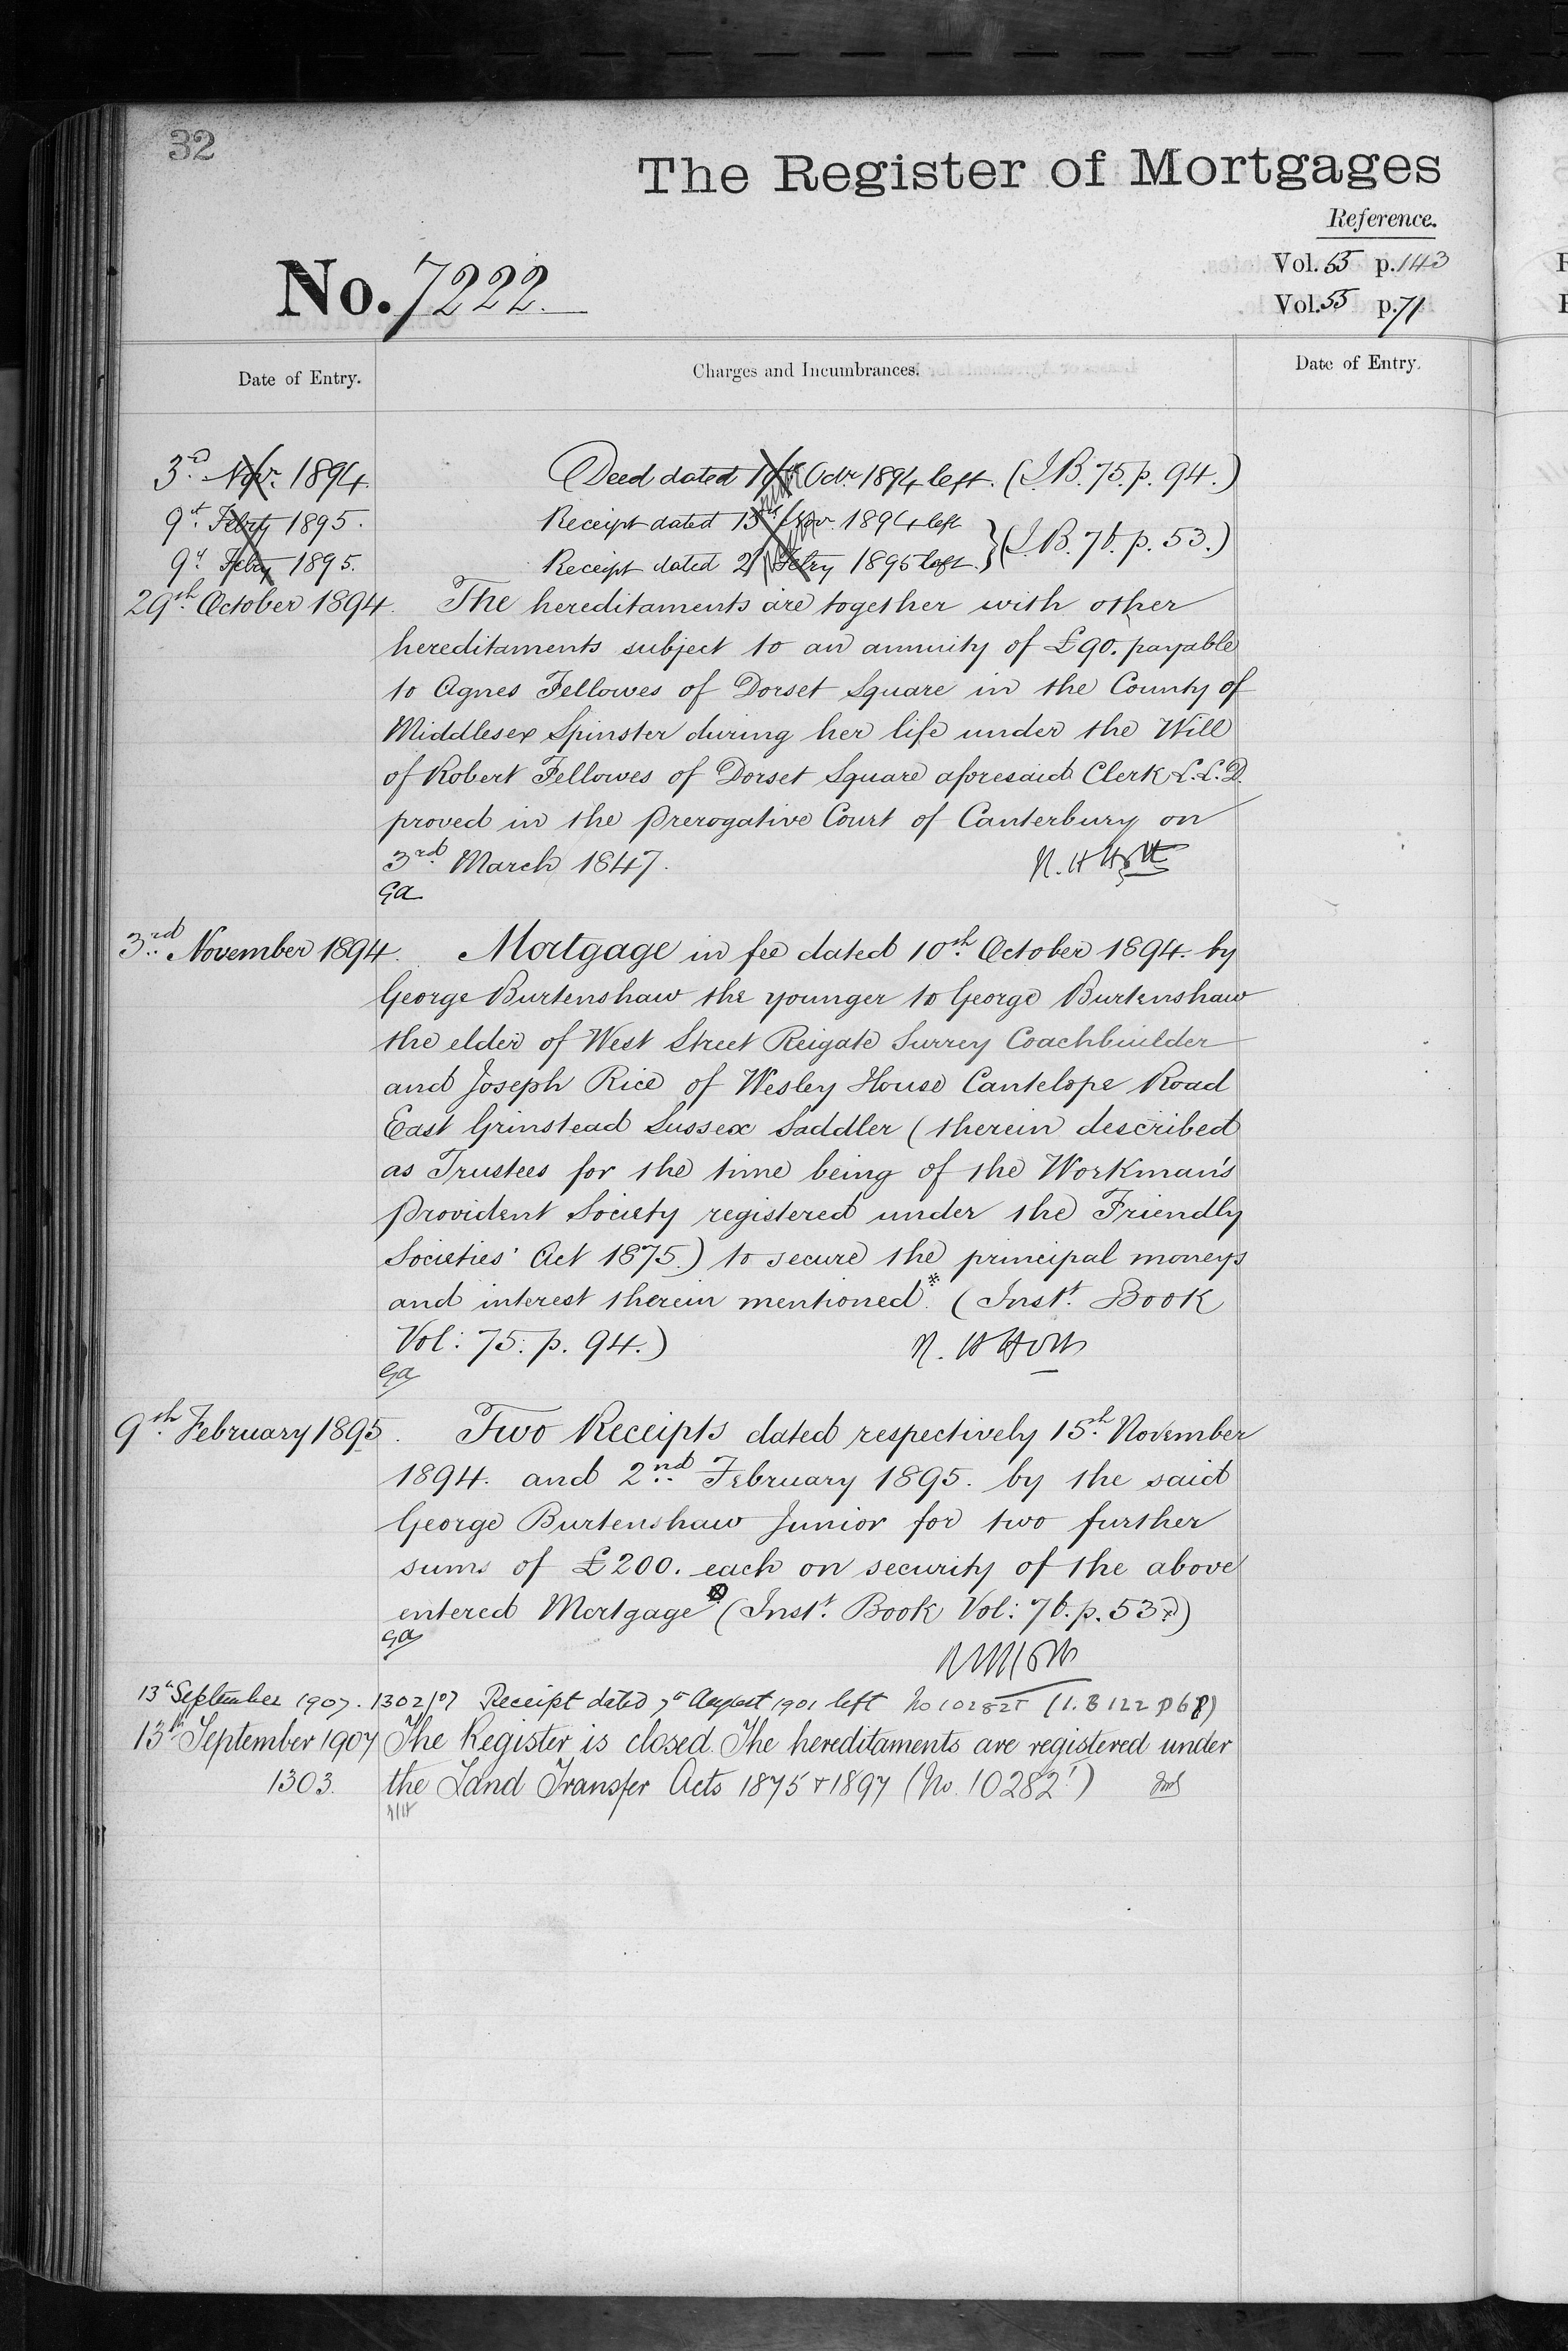 32
The Register of Mortgages
Reference.
No. 7222.
Vol. 55 p. 143
Vol. 55 p. 71
Date of Entry.
Charges and Incumbrances.
Date of Entry.
3rd Novr. 1894. Deed dated 10th Octr. 1894 left. (I.B. 75. p. 94.)
9th Febry 1895. Receipt dated 15th Nov. 1894 left
9th Febry 1895. Receipt dated 2nd Febry 1895 left. } (I.B. 76. p. 53.)
29th October 1894. The hereditaments are together with other
hereditaments subject to an annuity of £90. payable
to Agnes Fellowes of Dorset Square in the County of
Middlesex Spinster during her life under the Will
of Robert Fellowes of Dorset Square aforesaid Clerk L.L.D.
proved in the Prerogative Court of Canterbury on
3rd March 1847.
Ga
3rd November 1894. Mortgage in fee dated 10th October 1894. by
George Burtenshaw the younger to George Burtenshaw
the elder of West Street Reigate Surrey Coachbuilder
and Joseph Rice of Wesley House Cantelope Road
East Grinstead Sussex Saddler (therein described
as Trustees for the time being of the Workman's
Provident Society registered under the Friendly
Societies' Act 1875.) to secure the principal moneys
and interest therein mentioned.* (Inst. Book
Vol: 75. p. 94.)
Ga
9th February 1895. Two Receipts dated respectively 15th November
1894. and 2nd February 1895. by the said
George Burtenshaw Junior for two further
sums of £200. each on security of the above
entered Mortgage (Inst. Book Vol: 76. p. 53.)
Ga
13th September 1907. 1302/07 Receipt dated 7th August 1901 left No 10282 (I.B 122 p 68)
13th September 1907 The Register is closed. The hereditaments are registered under
1303. the Land Transfer Acts 1875 & 1897 (No. 10282)